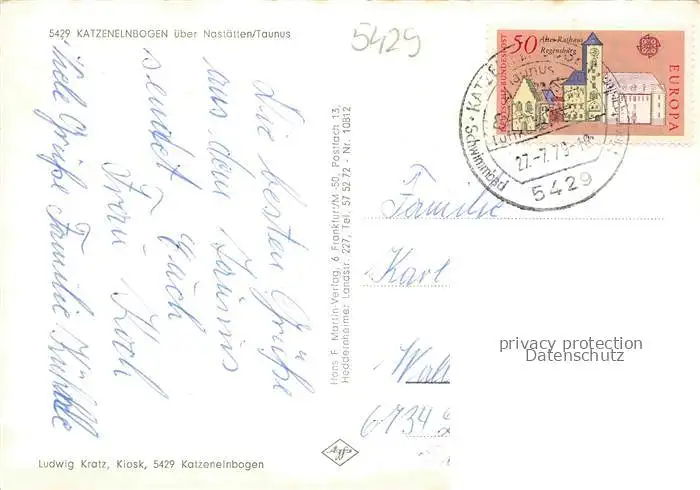 5429 KATZENELNBOGEN über Nastätten/Taunus
5429
DEUTSCHE BUNDESPOST
50
Altes Rathaus
Regensburg
EUROPA
Taunus
Schwimmbad
27.-7.79.-18
5429
Die besten Grüße
aus dem Taunus
sendet Euch
Frau Koch
viele Grüße Familie
Hans F. Martin-Verlag, 6 Frankfurt/M-50, Postfach 13,
Heddernheimer Landstr. 227, Tel. 57 52 72 - Nr. 10812
Familie
Karl
6734
privacy protection
Datenschutz
Ludwig Kratz, Kiosk, 5429 Katzenelnbogen